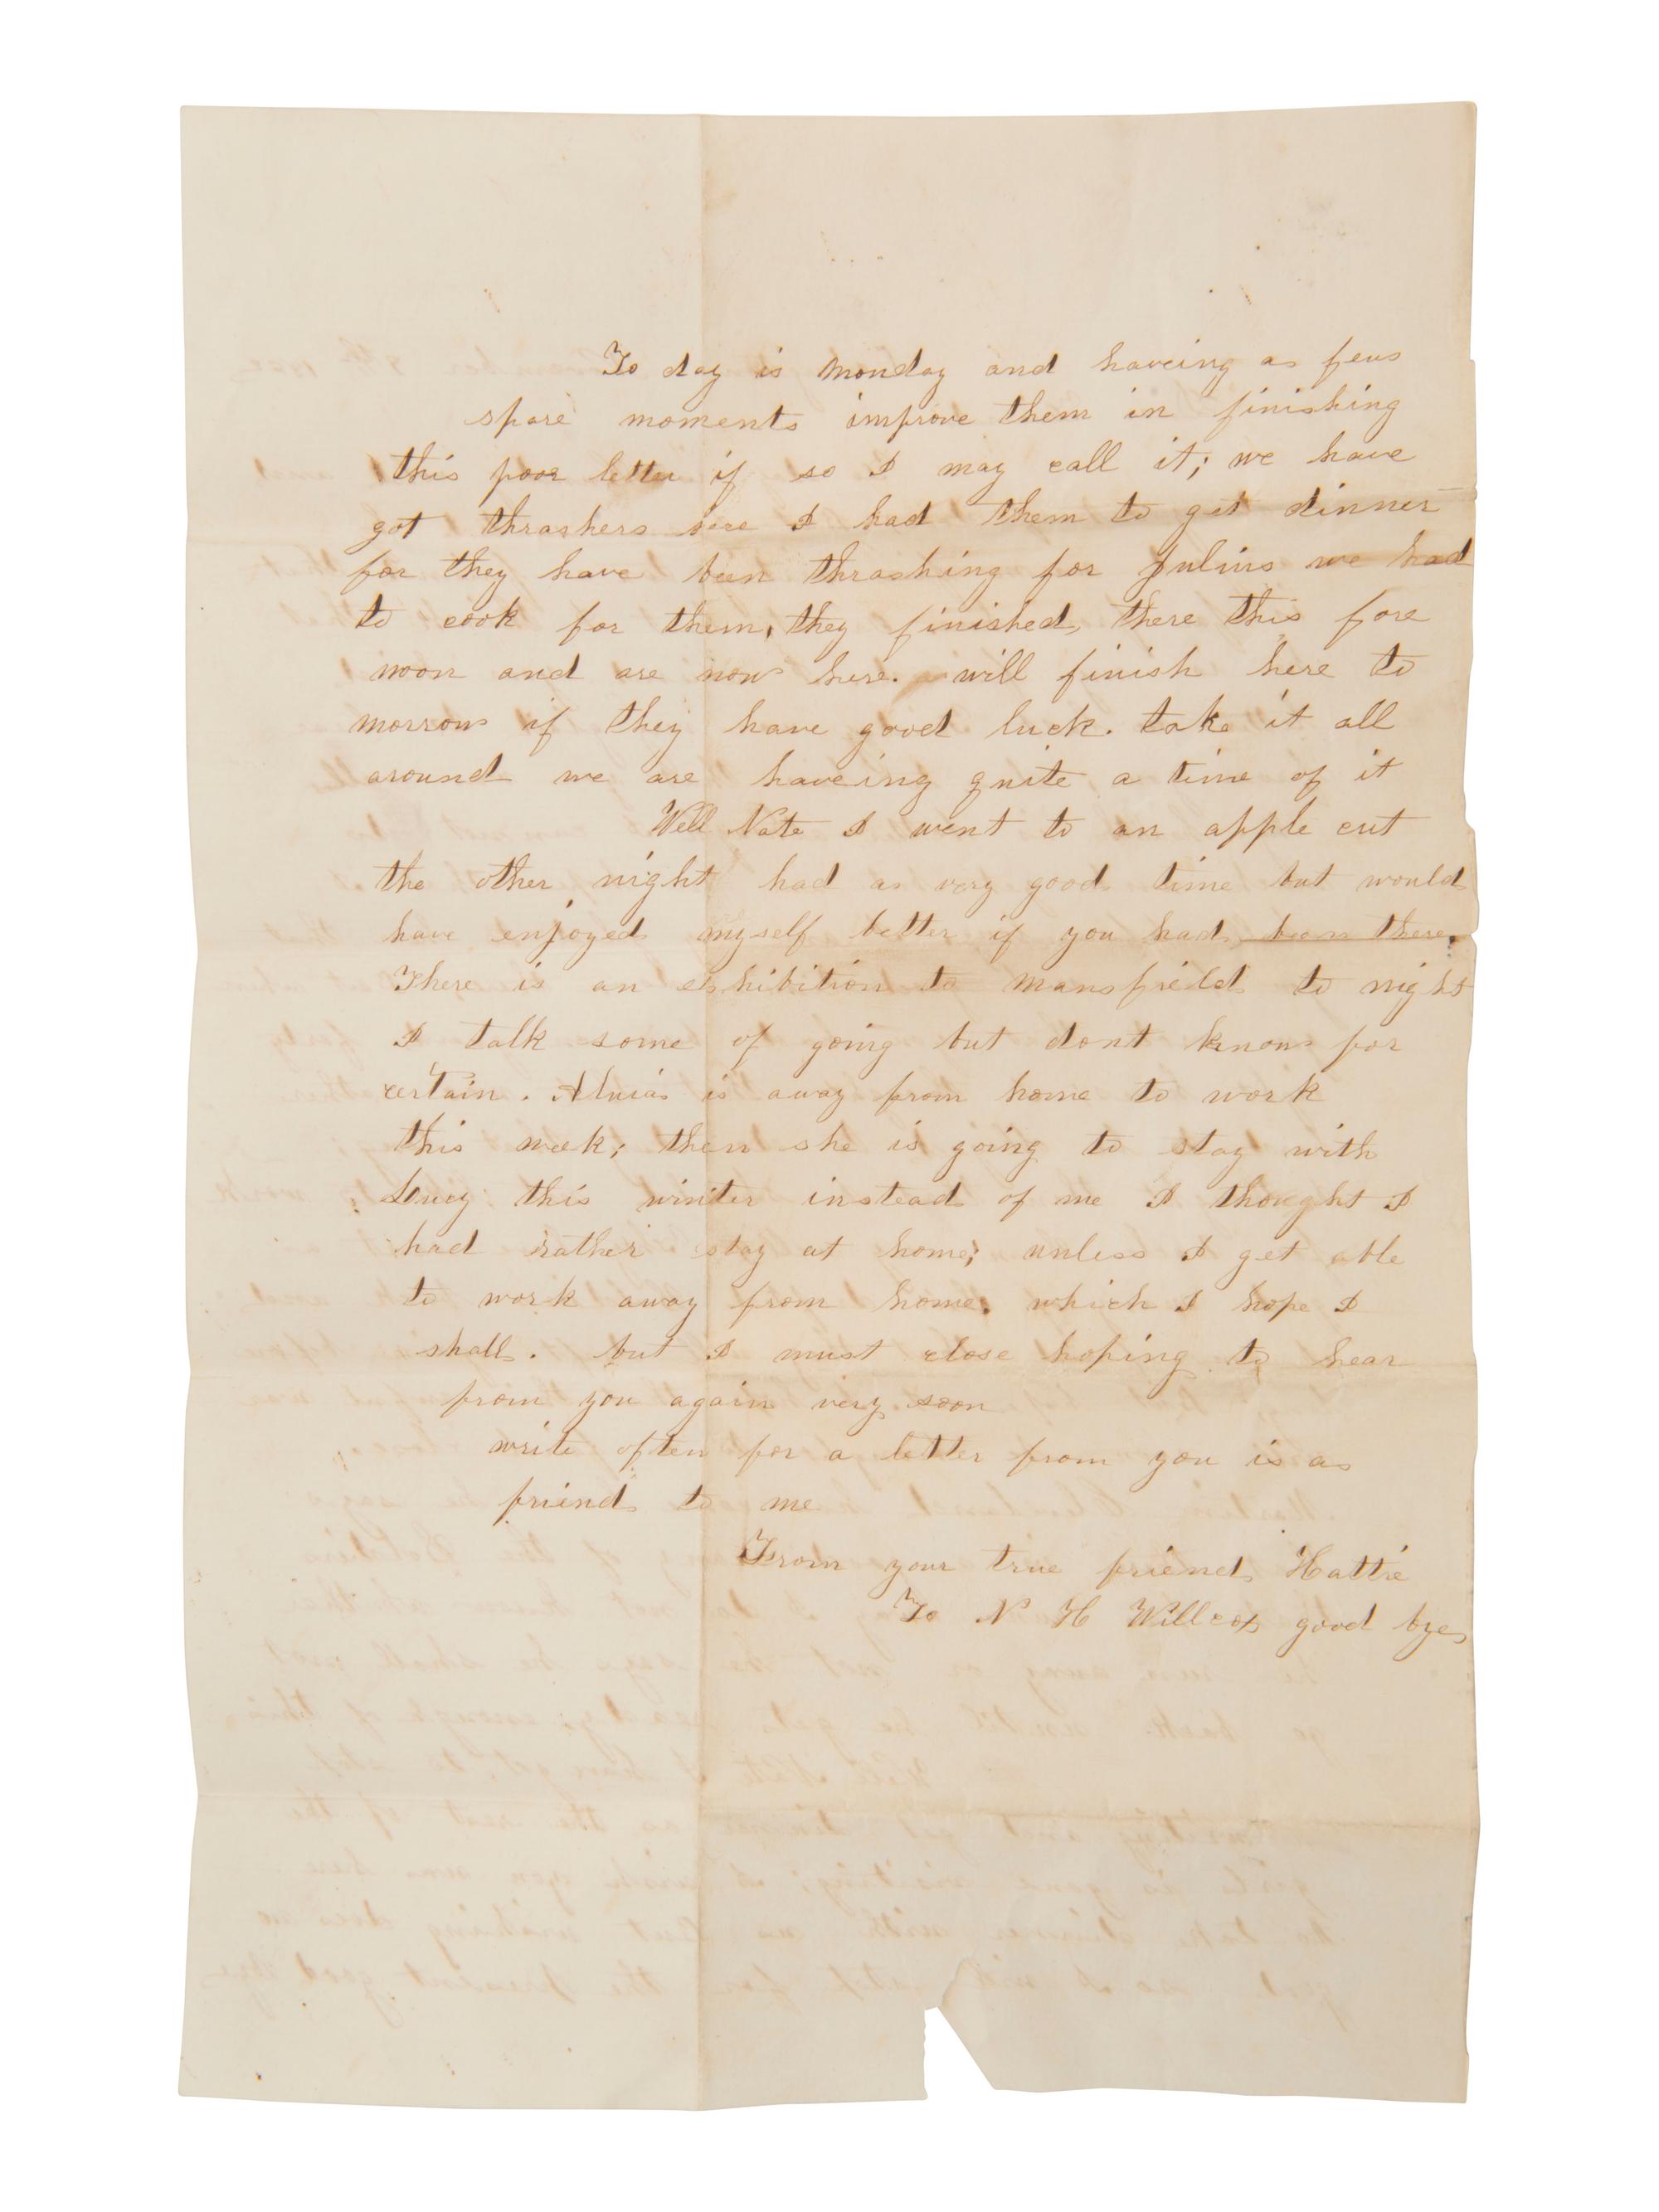 To day is Monday and haveing a few
spare moments improve them in finishing
this poor letter if so I may call it; we have
got thrashers here I had them to get dinner
for they have been thrashing for Julius we had
to cook for them, they finished there this fore
noon and are now here. will finish here to
morrow if they have good luck. take it all
around we are haveing quite a time of it
Well Nate I went to an apple cut
the other night had a very good time but would
have enjoyed myself better if you had been there.
There is an exhibition to Mansfield to night
I talk some of going but dont know for
certain. is away from home to work
this week; then she is going to stay with
Loucy this winter instead of me I thought I
had rather stay at home; unless I get able
to work away from home. which I hope I
shall. but I must close hoping to hear
from you again very soon
write often for a letter from you is a
friend to me
From your true friend Hattie
To N H Willcox good bye